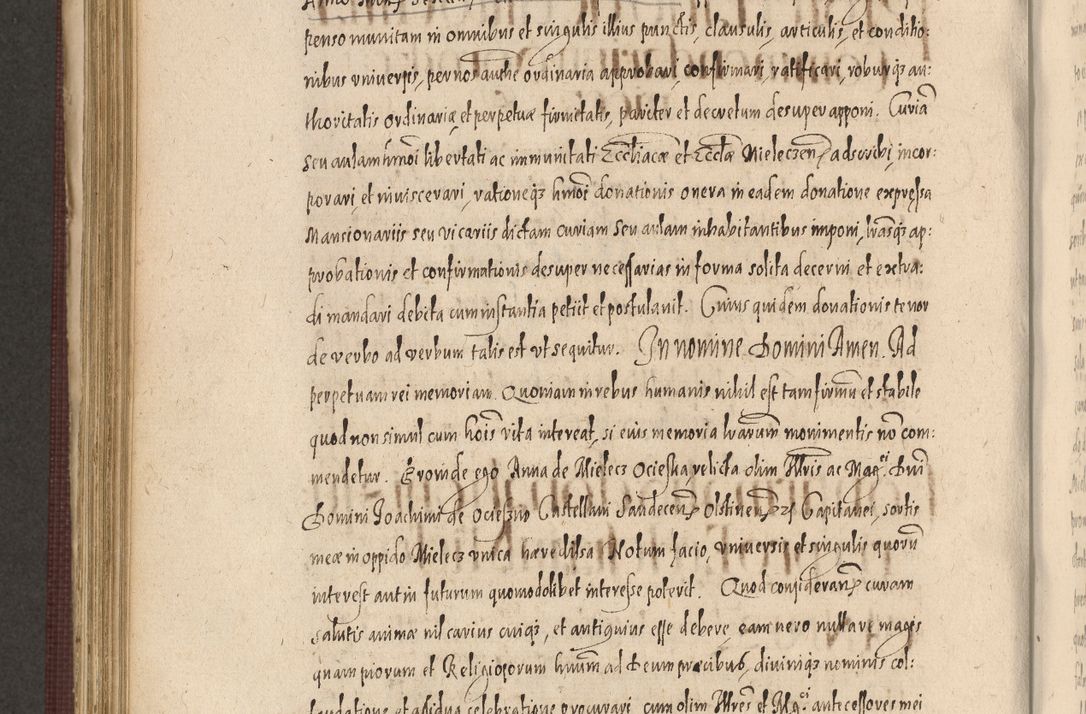 penso munitam in omnibus et singulis illius punctis, clausulis, articulis, et conditio:
nibus vniuersis, per nos authte ordinaria approbari, confirmari, ratificari, roburq3 au:
thoritatis ordinariæ, et perpetuæ firmitatis, pariter et decretum desuper apponi. Curiã
seu aulam hmõi libertati ac immunitati Ecclãiacæ et Ecclæ Mieleczen adscribi, incor:
porari, et inuiscerari, rationeq3 hmõi donationis onera in eadem donatione expressa
Mansionariis seu vicariis dictam curiam seu aulam inhabitantibus imponi, lrãsq3 ap:
probationis et confirmationis desuper necessarias in forma solita decerni et extra:
di mandari debita cum instantia petiit et postulauit. Cuius quidem donationis tenor
de verbo ad verbum talis est vt sequitur. In nomine Domini Amen. Ad
perpetuam rei memoriam. Quoniam in rebus humanis nihil est tam firmũ et stabile
quod non simul cum hoĩs vita intereat, si eius memoria lrarum monimentis nõ com:
mendetur. Proinde ego Anna de Mielecz Ocieska relicta olim Illris ac Mag.ci Dni
Domini Joachimi de Ocieszino Castellani Sandecen Olstinen 23 Capitanei, sortis
meæ in oppido Mielecz vnica hæredissa Notum facio, vniuersis et singulis quorũ
interest aut in futurum quomodolibet interesse poterit. Quod consideran curam
salutis animæ nil carius cuiq3, et antiquius esse debere, eam vero nulla re magis
quam piorum et Religiosorum hinum ad Deum precibus, diuiniq3 nominis col:
laudatione et assidua celebratione procurari, cum olim Illres et Mg.ci antecessores mei